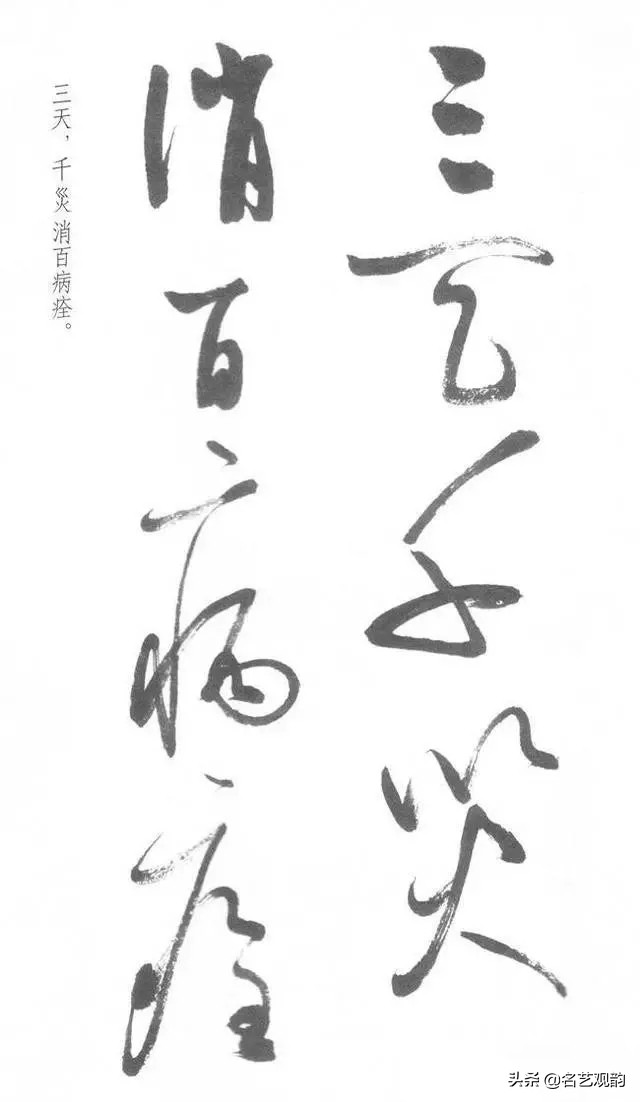 三天千災
消百病痊
三天，千災消百病痊。
头条 @名艺观韵